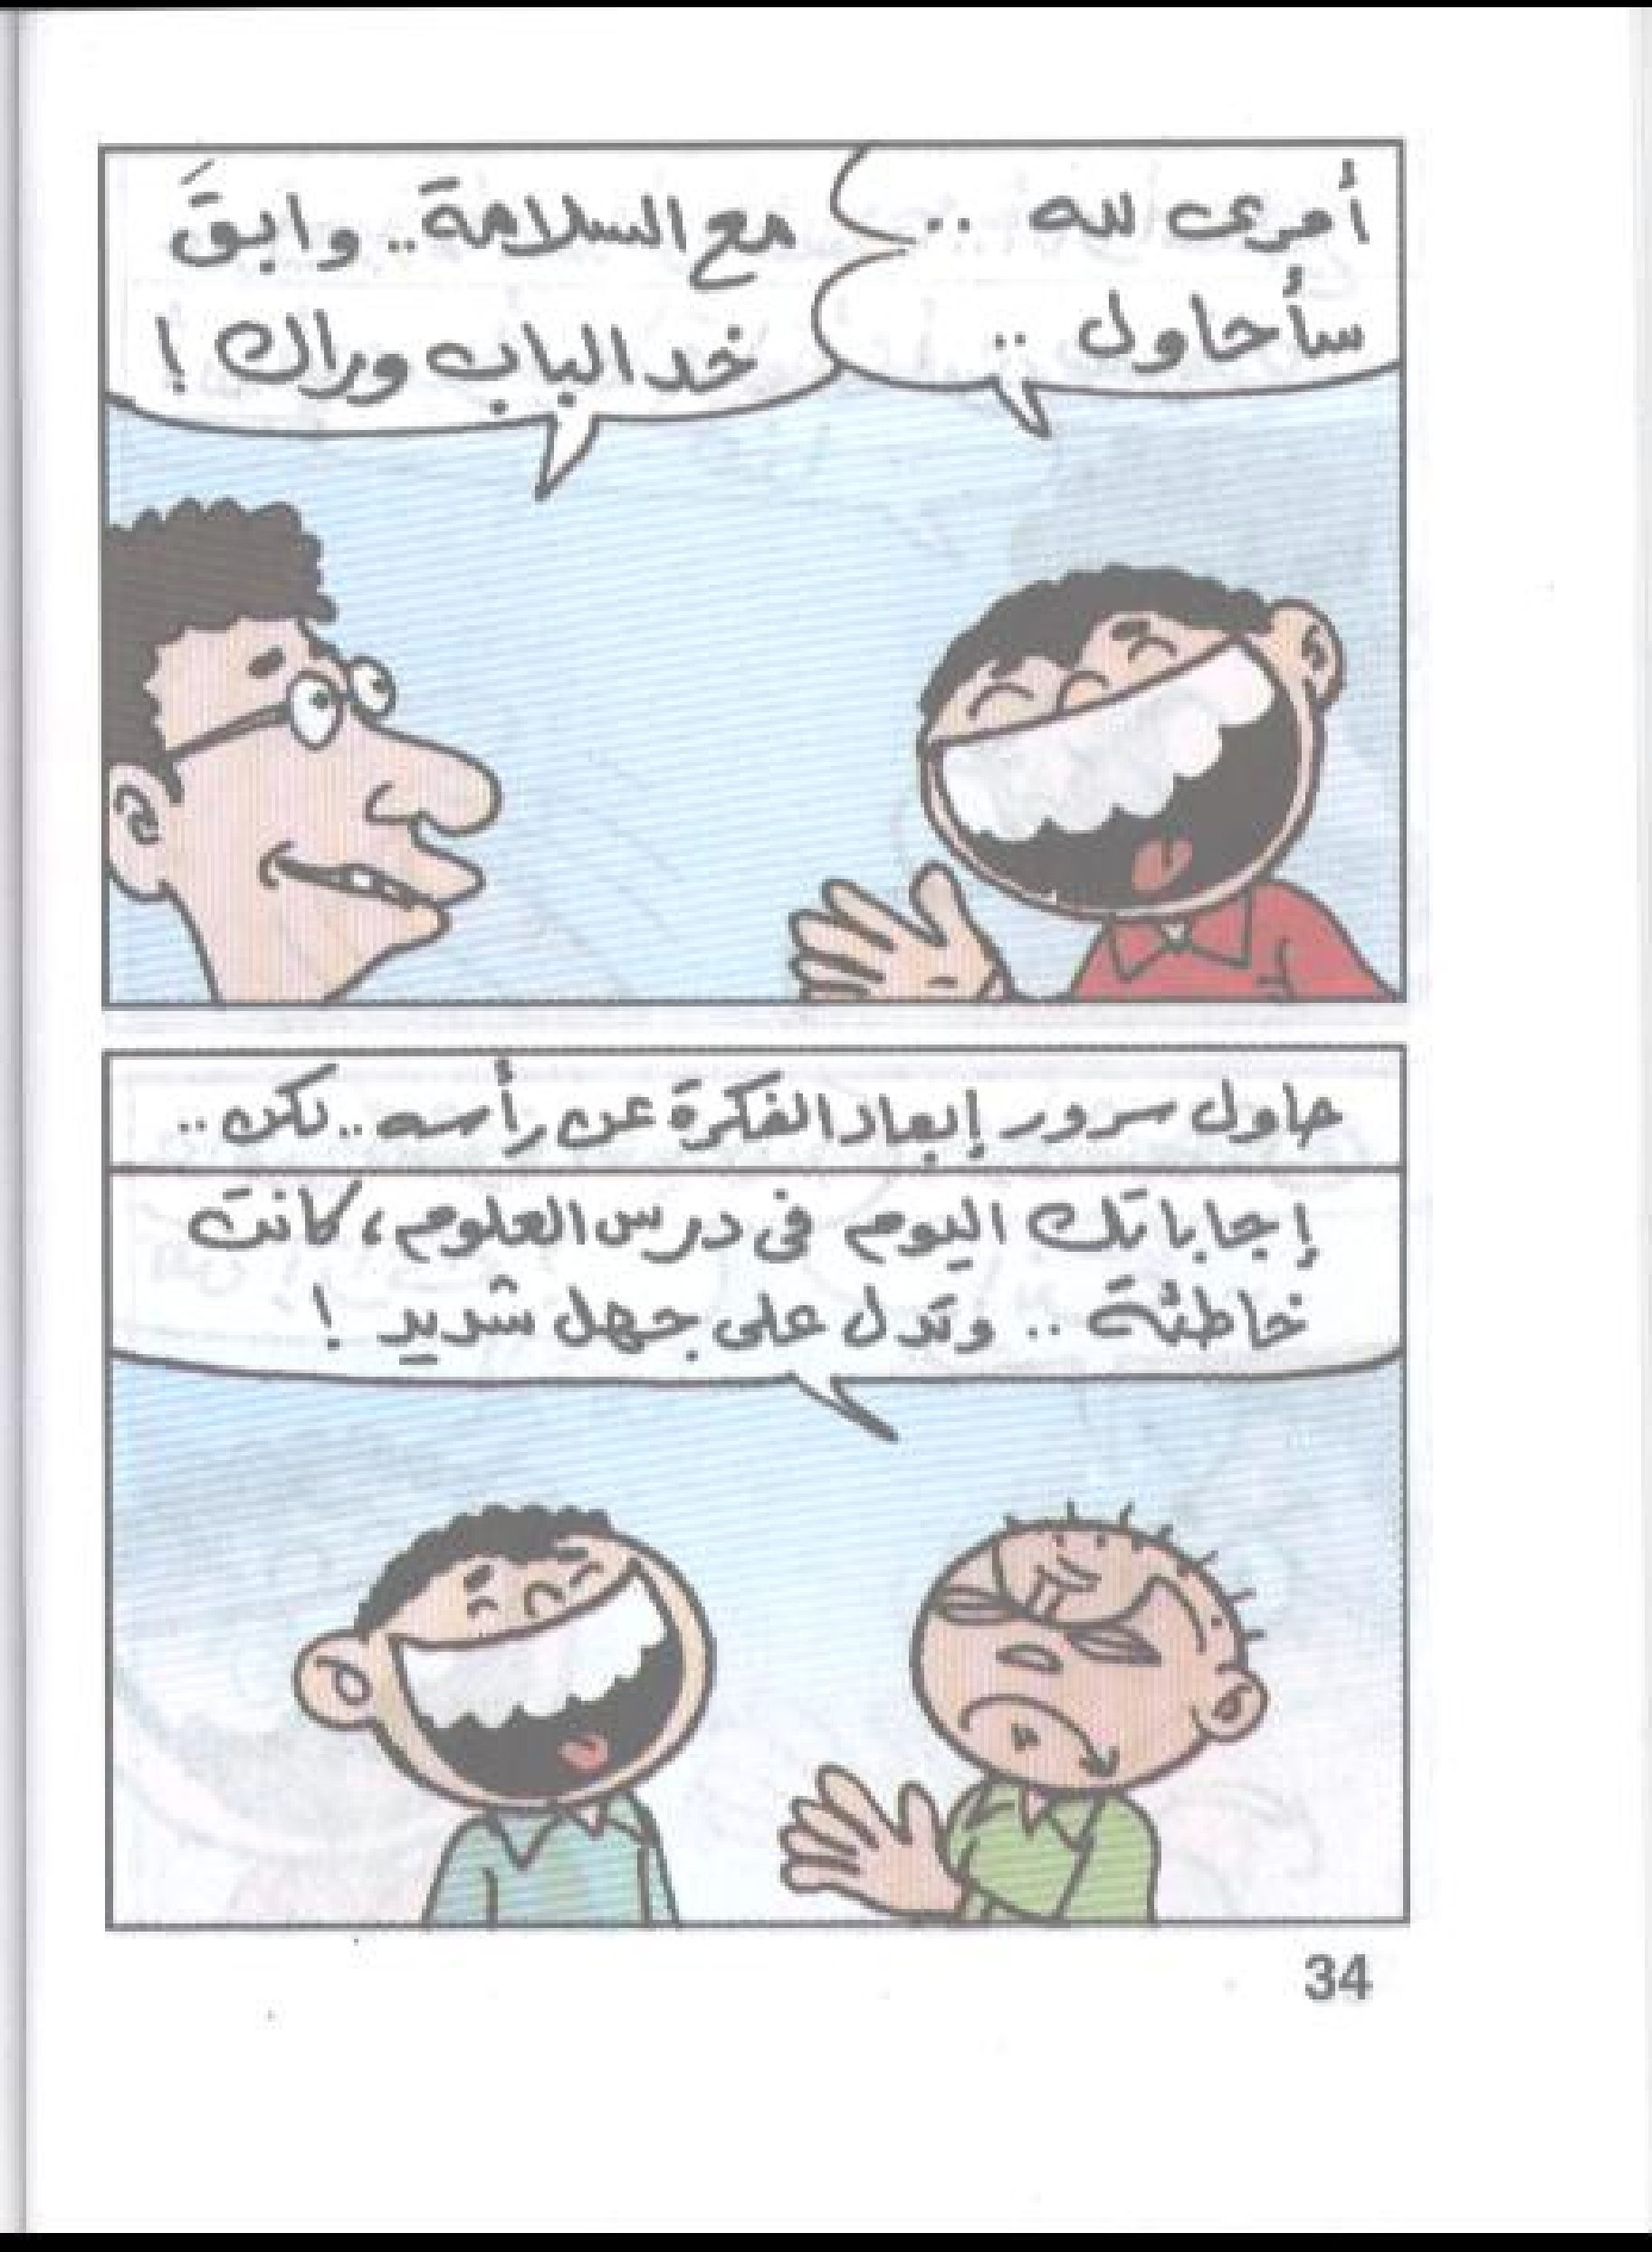 أمرى لله ..
سأحاول ..
مع السلامة .. وابقَ
خد الباب وراك !
حاول سرور إبعاد الفكرة عن رأسه .. لكن ..
إجاباتك اليوم فى درس العلوم، كانت
خاطئة .. وتدل على جهل شديد !
34